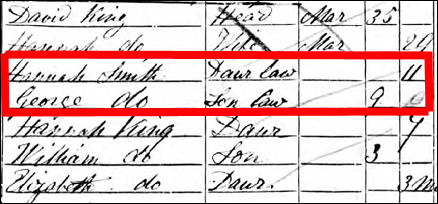 David King Head Mar 35
Hannah do Wife Mar 29
Hannah Smith Dawr Law 11
George do Son Law 9
Hannah King Dawr 7
William do Son 3
Elizabeth do Dawr. 3 m